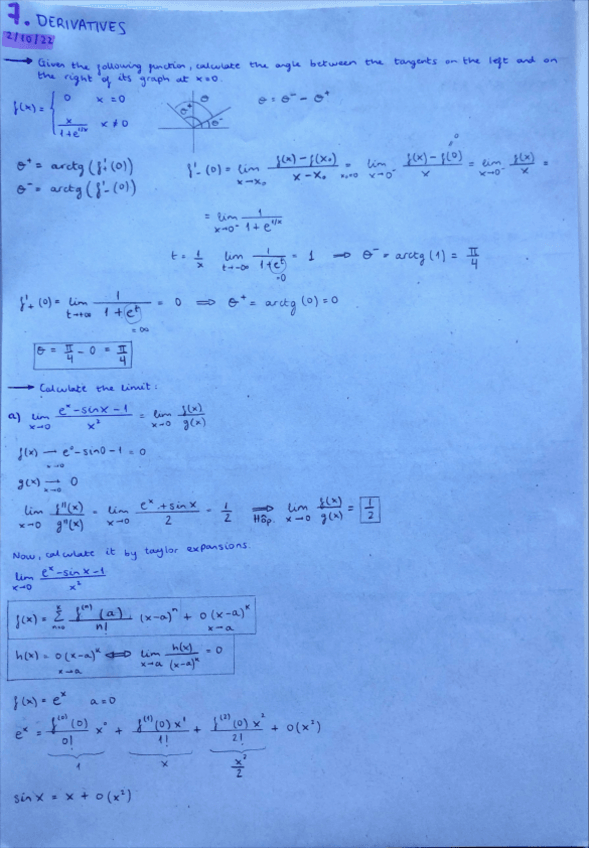 7. DERIVATIVES
2/10/22
→ Given the following function, calculate the angle between the tangents on the left and on
the right of its graph at x=0.
f(x) = { 0 x = 0
x/(1+e^(1/x)) x ≠ 0
θ
θ⁺
θ⁻
θ = θ⁻ - θ⁺
θ⁺ = arctg (f'₊(0))
θ⁻ = arctg (f'₋(0))
f'₋(0) = lim x→x₀ (f(x) - f(x₀))/(x - x₀) = x₀=0 lim x→0⁻ (f(x) - f(0))/x = lim x→0⁻ f(x)/x =
= lim x→0⁻ 1/(1+e^(1/x))
t = 1/x lim t→-∞ 1/(1+e^t) = 1 ⇒ θ⁻ = arctg (1) = π/4
=0
f'₊(0) = lim t→+∞ 1/(1+e^t) = 0 ⇒ θ⁺ = arctg (0) = 0
=∞
θ = π/4 - 0 = π/4
→ Calculate the limit:
a) lim x→0 (e^x - sinx - 1)/x² = lim x→0 f(x)/g(x)
f(x) → x→0 e⁰ - sin0 - 1 = 0
g(x) → x→0 0
lim x→0 f''(x)/g''(x) = lim x→0 (e^x + sinx)/2 = 1/2 ⇒ Hôp. lim x→0 f(x)/g(x) = 1/2
Now, calculate it by taylor expansions.
lim x→0 (e^x - sinx - 1)/x²
f(x) = Σ n=0 k f^(n)(a)/n! (x-a)^n + o(x-a)^k x→a
h(x) = o(x-a)^k x→a ⇔ lim x→a h(x)/(x-a)^k = 0
f(x) = e^x a=0
e^x = f^(0)(0)/0! x⁰ + f^(1)(0) x¹/1! + f^(2)(0) x²/2! + o(x²)
1 x x²/2
sin x = x + o(x²)